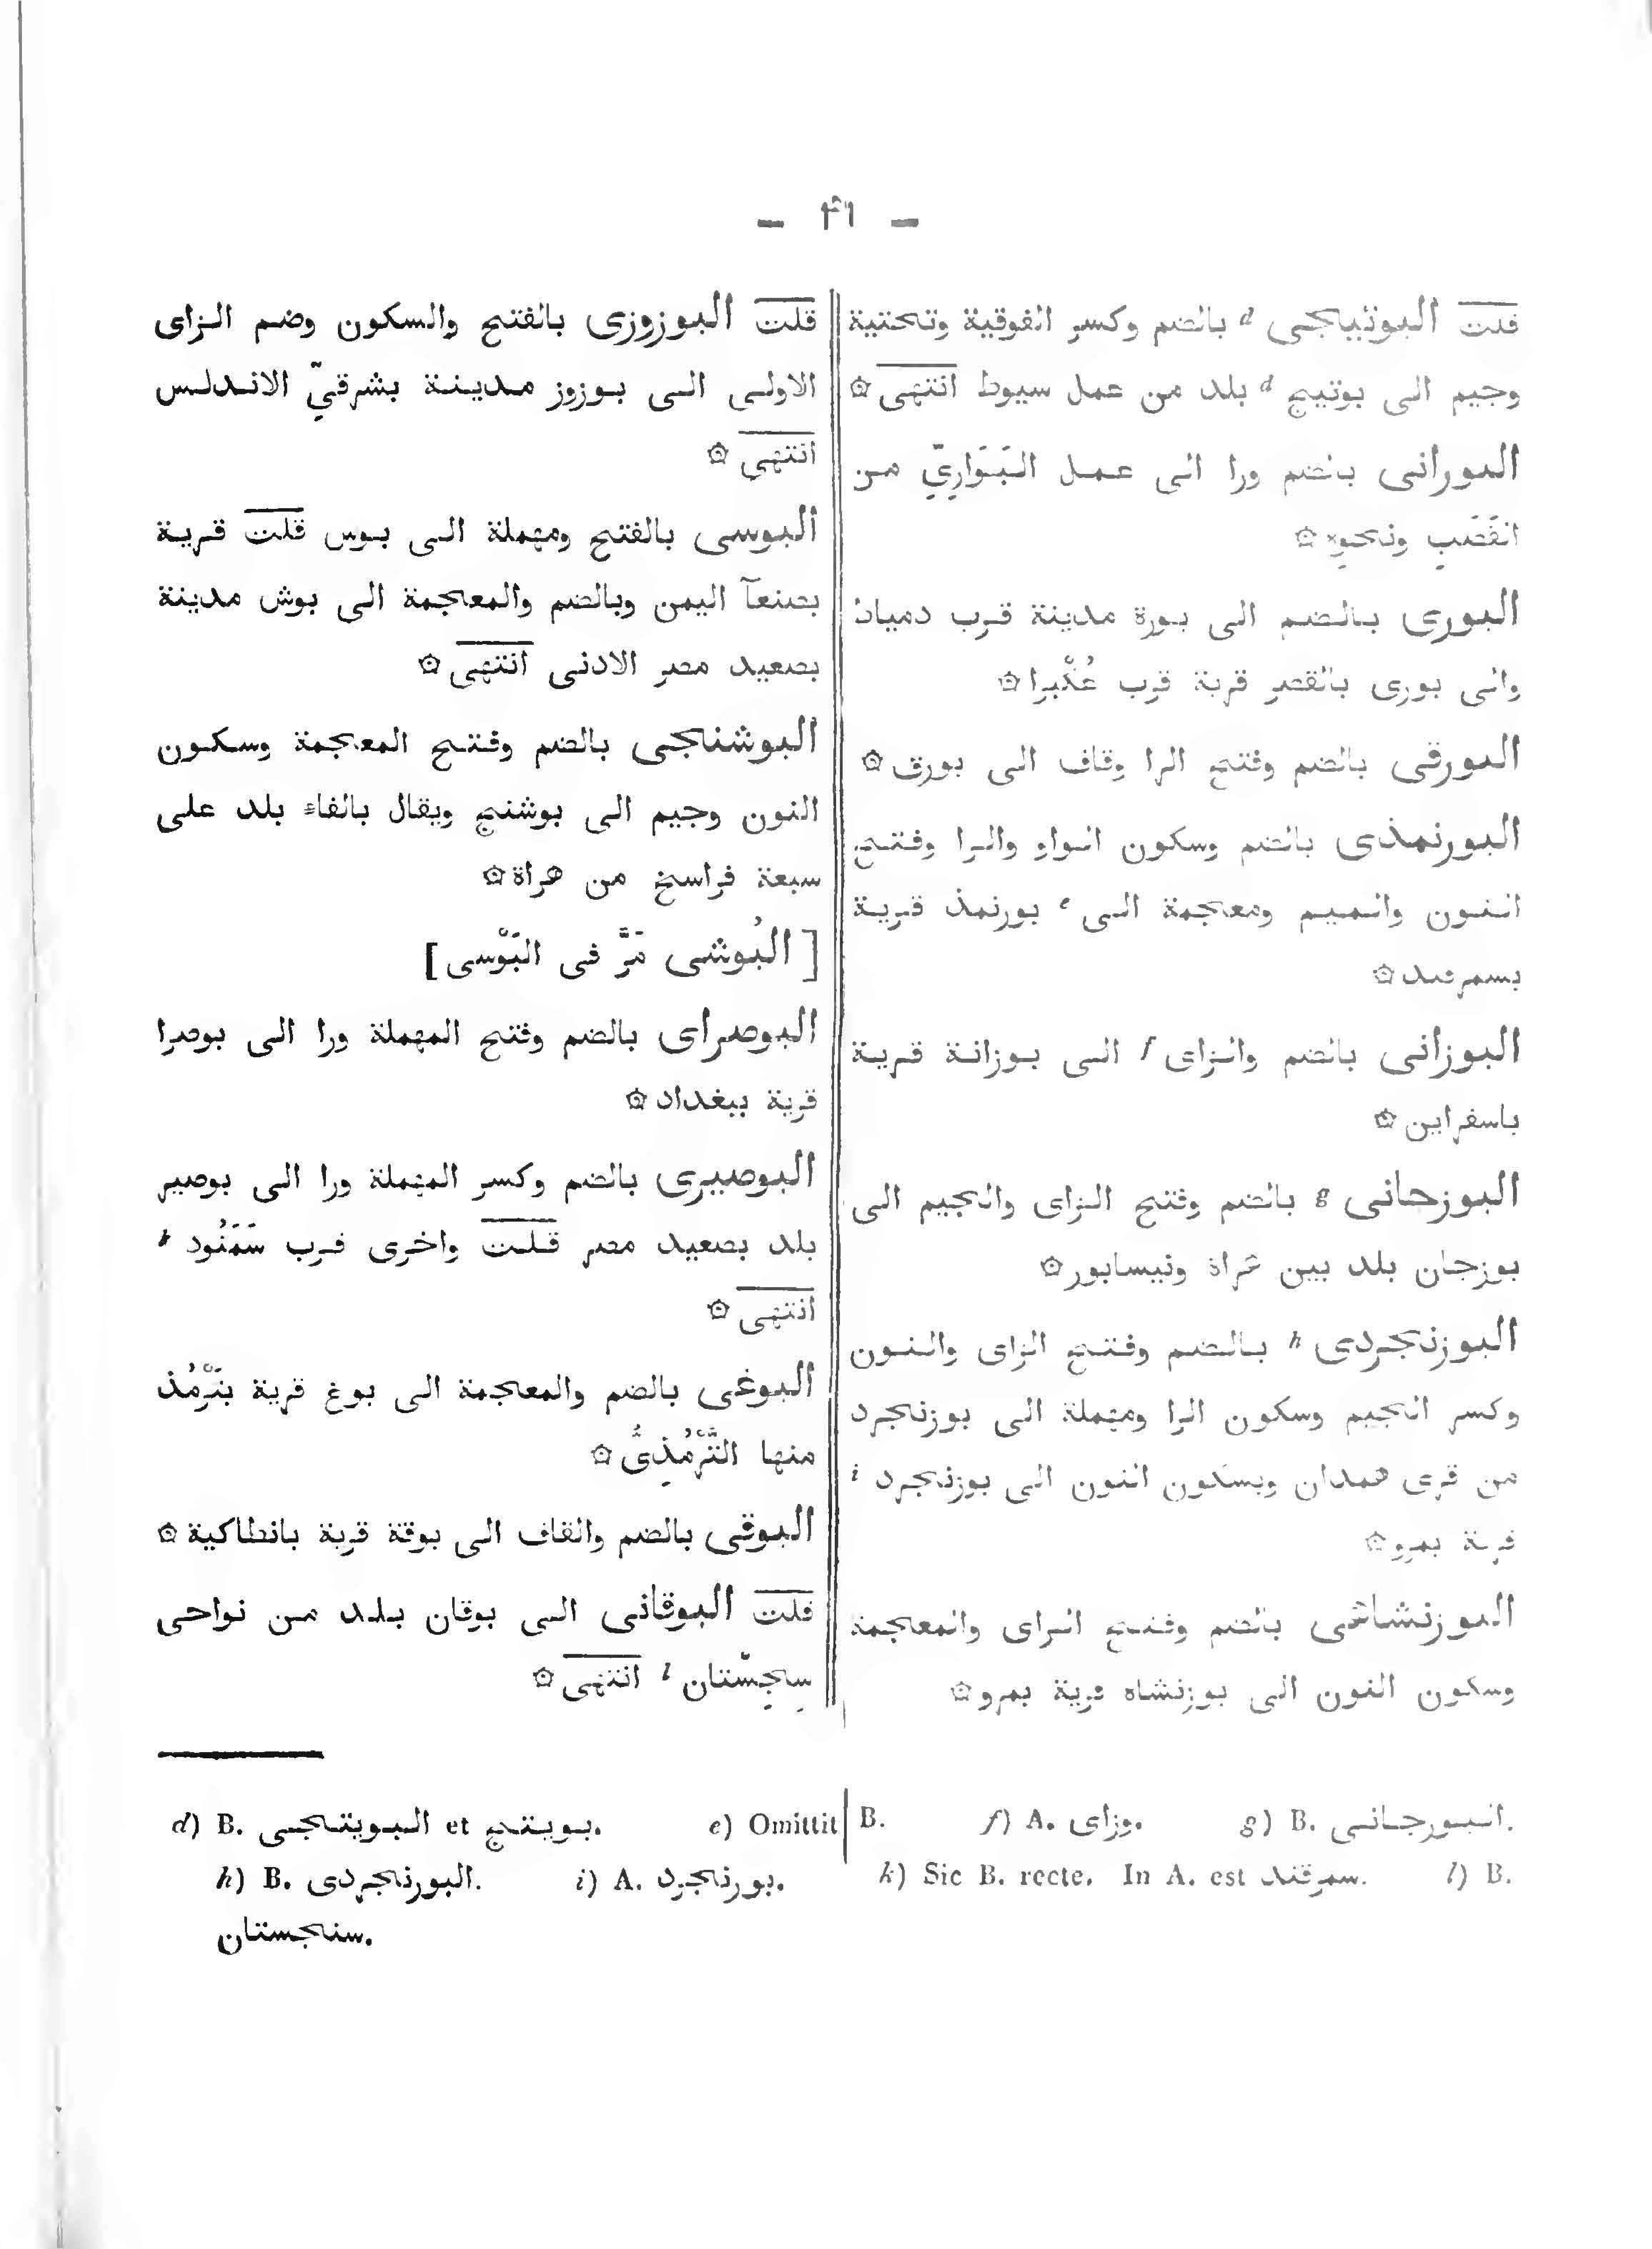 — ۴۹ —
قلت البوتيجى d بالضم وكسر الفوقية وتحتية
وجيم الى بوتيج d بلد من عمل سيوط انتهى ۞
البورانى بالضم ورا الى عمل البَوَارِىّ من
القَصَب ونحوه ۞
البورى بالضم الى بورة مدينة قرب دمياط
والى بورى بالقصر قرية قرب عُكْبرا ۞
البورقى بالضم وفتح الرا وقاف الى بورق ۞
البورنمذى بالضم وسكون الواو والرا وفتح
النون والميم ومعجمة الى e بورنمذ قرية
بسمرقند ۞
البوزانى بالضم والزاى f الى بوزانة قرية
باسفراين ۞
البوزجانى g بالضم وفتح الزاى والجيم الى
بوزجان بلد بين هراة ونيسابور ۞
البوزنجردى h بالضم وفتح الزاى والنون
وكسر الجيم وسكون الرا ومهملة الى بوزنجرد
من قرى همدان وبسكون النون الى بوزنجرد i
قرية بمرو ۞
البوزنشاهى بالضم وفتح الزاى والمعجمة
وسكون النون الى بوزنشاه قرية بمرو ۞
قلت البوزوزى بالفتح والسكون وضم الزاى
الاولى الى بوزوز مدينة بشرقىّ الاندلس
انتهى ۞
البوسى بالفتح ومهملة الى بوس قلت قرية
بصنعآ اليمن وبالضم والمعجمة الى بوش مدينة
بصعيد مصر الادنى انتهى ۞
البوشنجى بالضم وفتح المعجمة وسكون
النون وجيم الى بوشنج ويقال بالفاء بلد على
سبعة فراسخ من هراة ۞
[البُوشى مَرَّ فى البَوْسى]
البوصراى بالضم وفتح المهملة ورا الى بوصرا
قرية ببغداد ۞
البوصيرى بالضم وكسر المهملة ورا الى بوصير
بلد بصعيد مصر قلت واخرى قرب سَمَنُود k
انتهى ۞
البوغى بالضم والمعجمة الى بوغ قرية بتَرْمُذ
منها التَّرْمُذِىُّ ۞
البوقى بالضم والقاف الى بوقة قرية بانطاكية ۞
قلت البوقانى الى بوقان بلد من نواحى
سِجِسْتان l انتهى ۞
d) B. البويتجى et بويتج. e) Omittit B. f) A. وزاى. g) B. البورجانى.
h) B. البورنجردى. i) A. بورنجرد. k) Sic B. recte. In A. est سمرقند. l) B.
سنجستان.